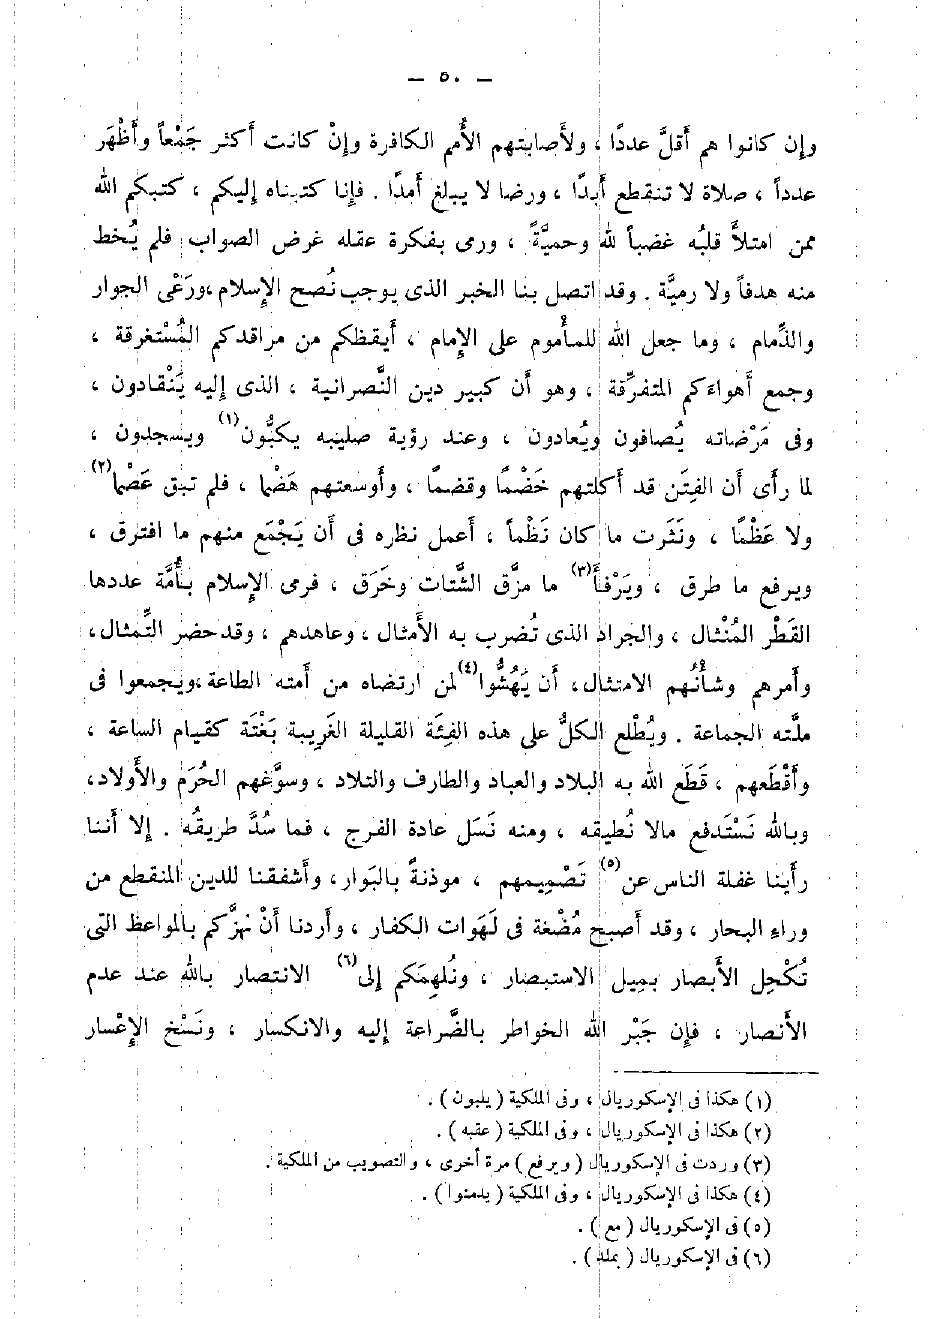 — ٥٠ —
وإن كانوا هم أقلَّ عددًا ، ولأصابتهم الأُمم الكافرة وإنْ كانت أكثر جَمْعاً وأَظْهَر
عدداً ، صلاة لا تنقطع أبدًا ، ورضا لا يبلغ أمدًا . فإنا كتبناه إليكم ، كتبكم الله
ممن امتلأَ قلبُه غضباً لله وحميَّةً ، ورمى بفكرة عقله غرض الصواب فلم يُخط
منه هدفاً ولا رميَّة . وقد اتصل بنا الخبر الذى يوجب نُصح الإِسلام ، ورَعْى الجوار
والذِّمام ، وما جعل الله للمأموم على الإِمام ، أيقظكم من مراقدكم المُسْتغرقة ،
وجمع أهواءَكم المتفرِّقة ، وهو أن كبير دين النَّصرانية ، الذى إليه يَنْقادون ،
وفى مَرْضاته يُصافون ويُعادون ، وعند رؤية صليبه يكبُّون(١) ويسجدون ،
لما رأى أن الفِتَن قد أكلتهم خَضْمًا وقضمًا ، وأوسعتهم هَضْما ، فلم تبق عَصْما(٢)
ولا عَظْمًا ، ونَثَرت ما كان نَظْماً ، أعمل نظره فى أن يَجْمَع منهم ما افترق ،
ويرفع ما طرق ، ويَرْفأَ(٣) ما مزَّق الشَّتات وخَرَق ، فرمى الإِسلام بأُمَّة عددها
القَطْر المُنْثال ، والجراد الذى تُضرب به الأَمثال ، وعاهدهم ، وقد حضر التِّمثال ،
وأمرهم وشأْنُهم الامتثال ، أن يَهُشُّوا(٤) لمن ارتضاه من أمته الطاعة ، ويجمعوا فى
ملَّته الجماعة . ويُطْلع الكلُّ على هذه الفِئَة القليلة الغَرِيبة بَغْتَة كقيام الساعة ،
وأَقْطَعهم ، قَطَع الله به البلاد والعباد والطارف والتلاد ، وسوَّغهم الحُرَم والأَولاد ،
وبالله نَسْتَدفع مالا نُطيقه ، ومنه نَسَل عادة الفرج ، فما سُدَّ طريقُه . إلا أننا
رأينا غفلة الناس عن(٥) تَصْمِيمهم ، موذنةً بالبَوار ، وأشفقنا للدين المنقطع من
وراءِ البحار ، وقد أصبح مُضْغة فى لَهَوات الكفار ، وأردنا أنْ نهزَّكم بالمواعظ التى
تُكْحِل الأَبصار بمِيل الاستبصار ، ونُلهِمَكم إلى(٦) الانتصار بالله عند عدم
الأَنصار ، فإن جَبْر الله الخواطر بالضَّراعة إليه والانكسار ، ونَسْخ الإِعْسار
(١) هكذا فى الإسكوريال ، وفى الملكية ( يلبون ) .
(٢) هكذا فى الإسكوريال ، وفى الملكية ( عقبه ) .
(٣) وردت فى الإسكوريال ( ويرفع ) مرة أخرى ، والتصويب من الملكية .
(٤) هكذا فى الإسكوريال ، وفى الملكية ( يدمنوا ) .
(٥) فى الإسكوريال ( مع ) .
(٦) فى الإسكوريال ( بملة ) .